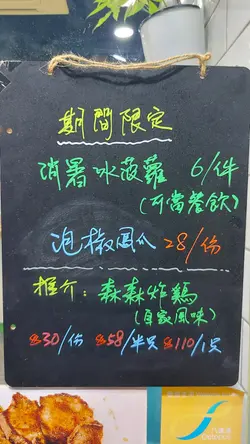 期間限定
消暑冰菠蘿 6/件
(可當餐飲)
泡椒鳳爪 28/份
推介：森森炸鷄
(自家風味)
$30/份 $58/半只 $110/1只